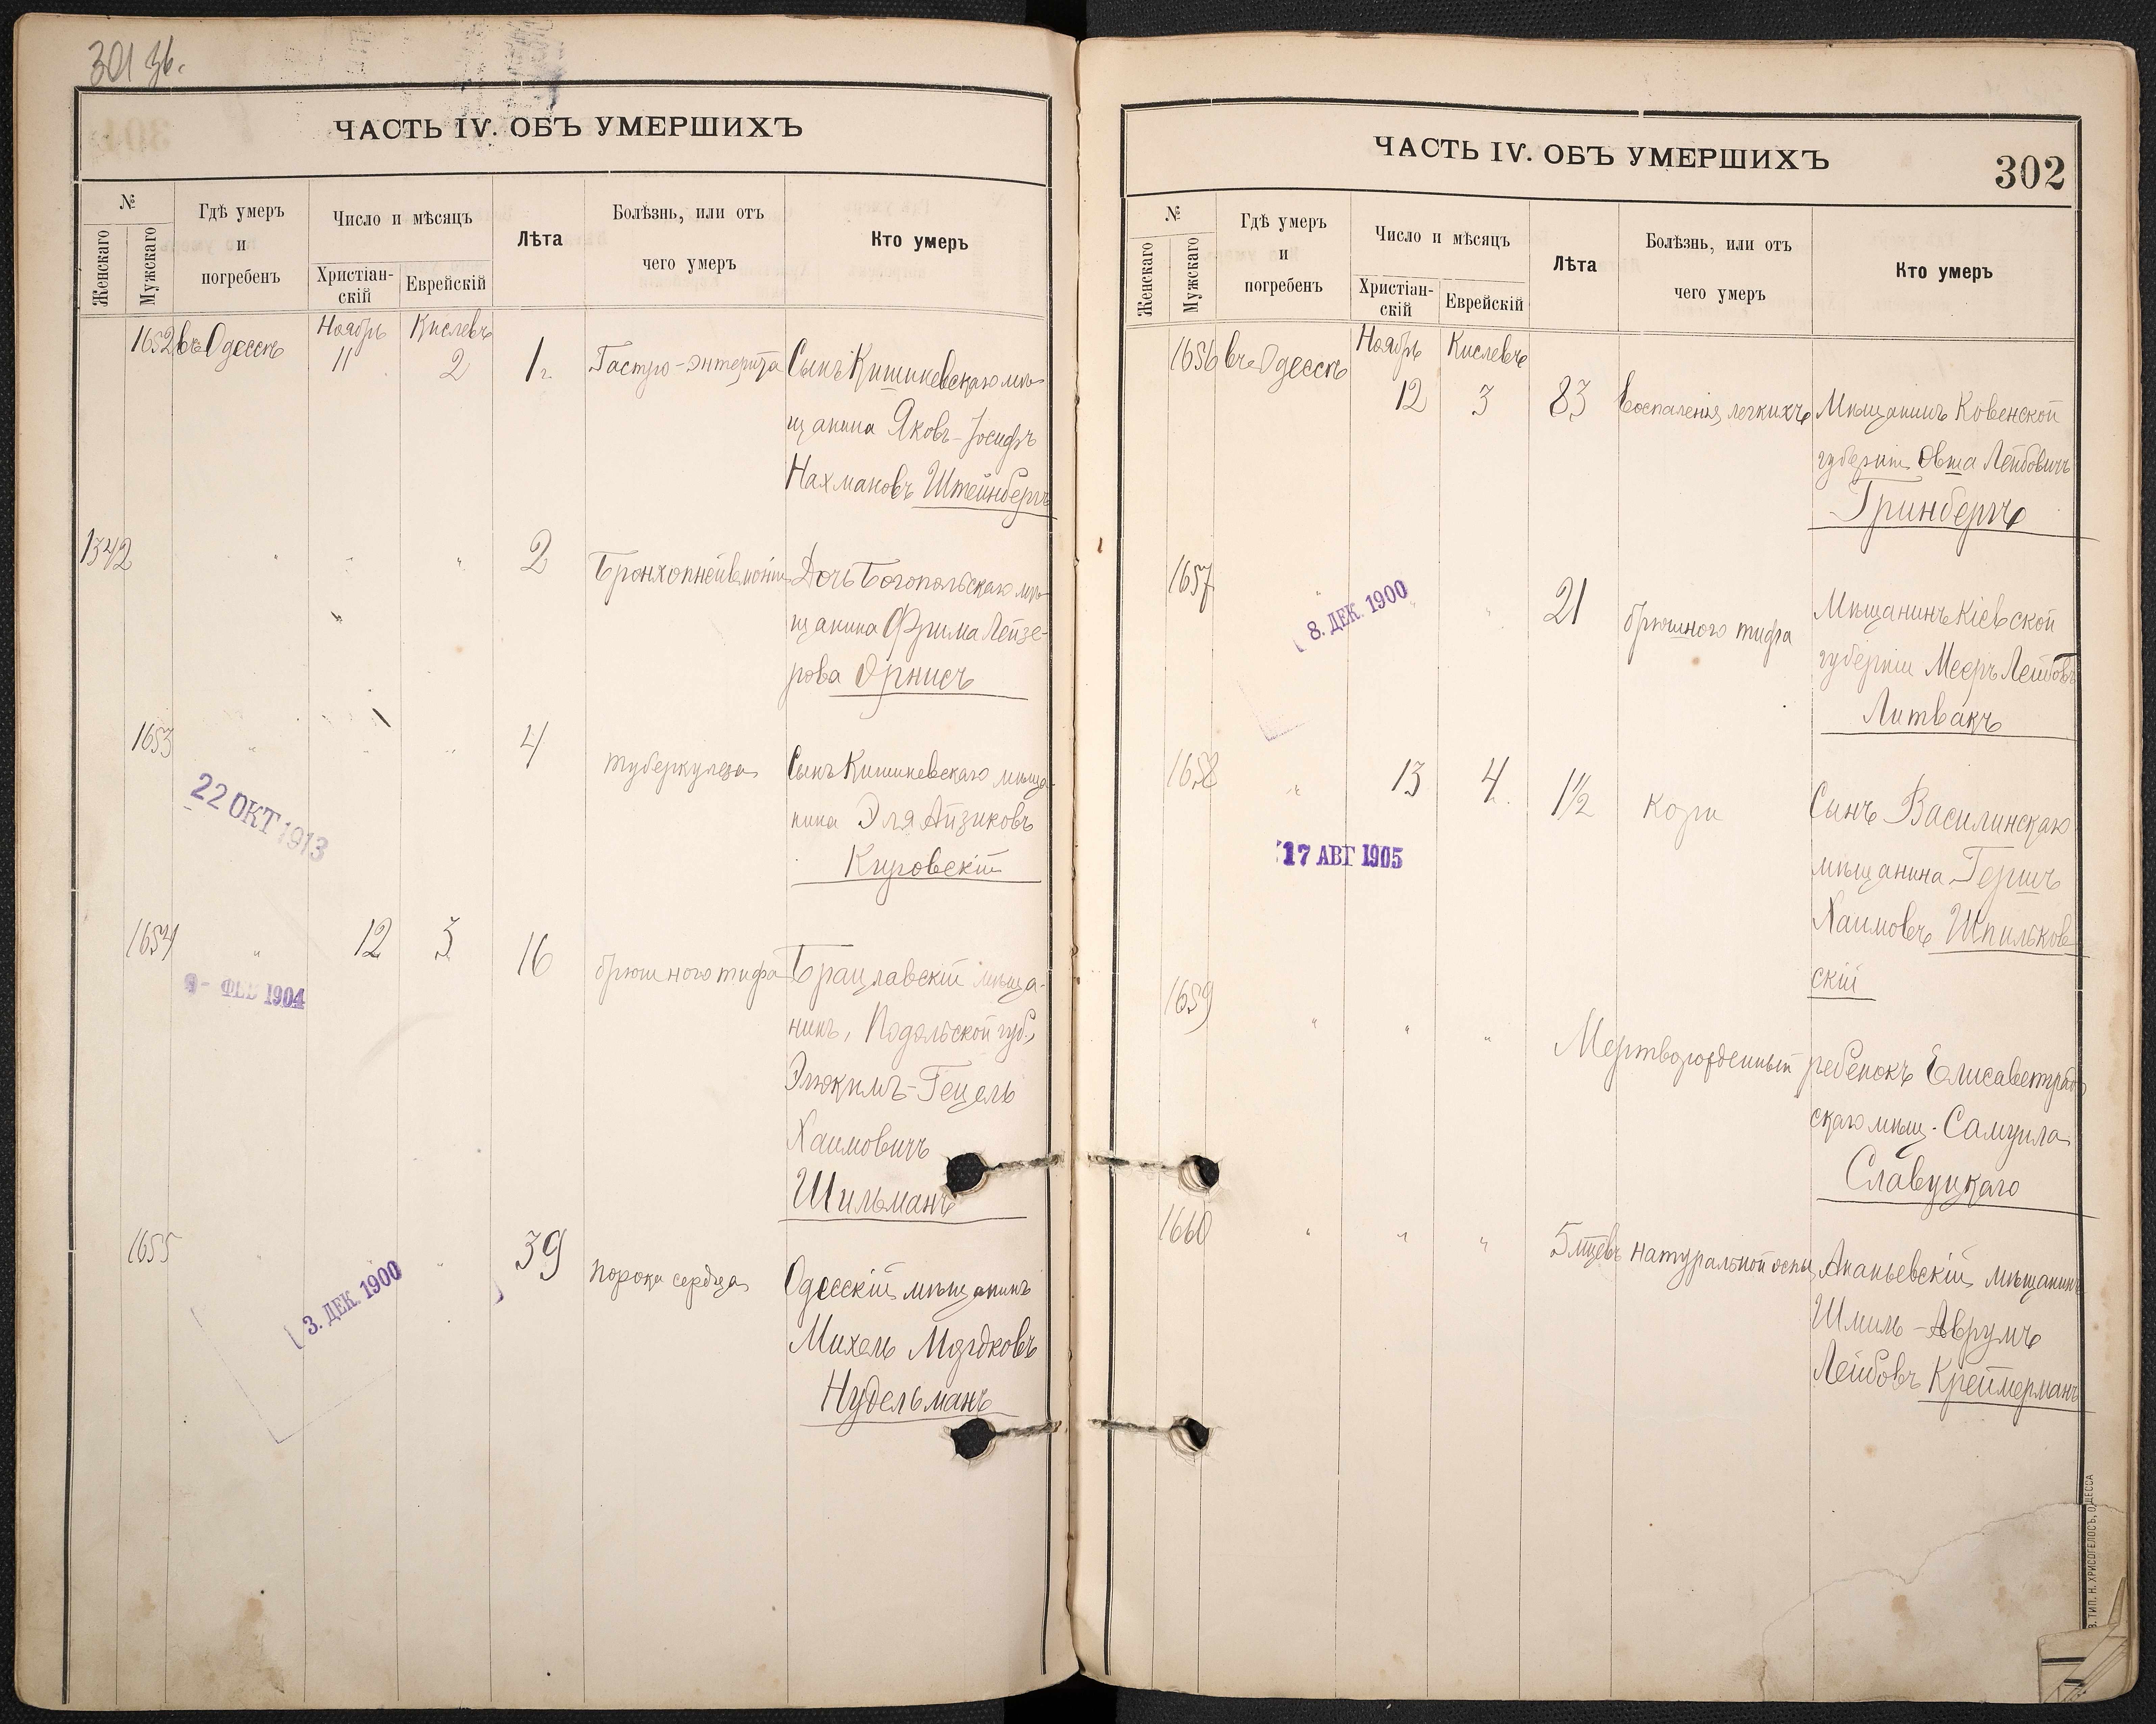 301 зв.
ЧАСТЬ IV. ОБЪ УМЕРШИХЪ
№
Женскаго
Мужскаго
Гдѣ умеръ
и
погребенъ
Число и мѣсяцъ
Христіан-
скій
Еврейскій
Лѣта
Болѣзнь, или отъ
чего умеръ
Кто умеръ
1652 въ Одессѣ Ноябрь 11 Кислевъ 2 1 г. Гастро-энтерита Сынъ Кишиневскаго мѣ-
щанина Яковъ-Іосифъ
Нахмановъ Штейнбергъ
1342 " " " 2 Бронхопнеймоніи Дочь Богопольскаго мѣ-
щанина Фрима Лейзе-
рова Орнисъ
1653 " " " 4 туберкулеза Сынъ Кишиневскаго мѣща-
нина Эля Айзиковъ
Кировскій
22 ОКТ 1913
1654 " 12 3 16 брюшного тифа Брацлавскій мѣща-
нинъ, Подольской губ.,
Элюкимъ-Гецель
Хаимовичъ
Шильманъ
9- ФЕВ 1904
1655 " " 39 порока сердца Одесскій мѣщанинъ
Михель Мордковъ
Нудельманъ
3. ДЕК. 1900
ЧАСТЬ IV. ОБЪ УМЕРШИХЪ
302
№
Женскаго
Мужскаго
Гдѣ умеръ
и
погребенъ
Число и мѣсяцъ
Христіан-
скій
Еврейскій
Лѣта
Болѣзнь, или отъ
чего умеръ
Кто умеръ
1656 въ Одессѣ Ноябрь 12 Кислевъ 3 83 Воспаленія легкихъ Мѣщанинъ Ковенской
губерніи Овша Лейбовичъ
Гринбергъ
1657 " " " 21 брюшного тифа Мѣщанинъ Кіевской
губерніи Мееръ Лейбовъ
Литвакъ
8. ДЕК. 1900
1658 " 13 4 1½ кори Сынъ Василинскаго
мѣщанина Гершъ
Хаимовъ Шпильков-
скій
17 АВГ 1905
1659 " " " Мертворожденный ребенокъ Елисаветград-
скаго мѣщ. Самуила
Славуцкаго
1660 " " " 5 мцевъ натуральной оспы Ананьевскій мѣщанинъ
Шмиль-Аврумъ
Лейбовъ Креймерманъ
ТИП. Н. ХРИСОГЕЛОСЪ, ОДЕССА